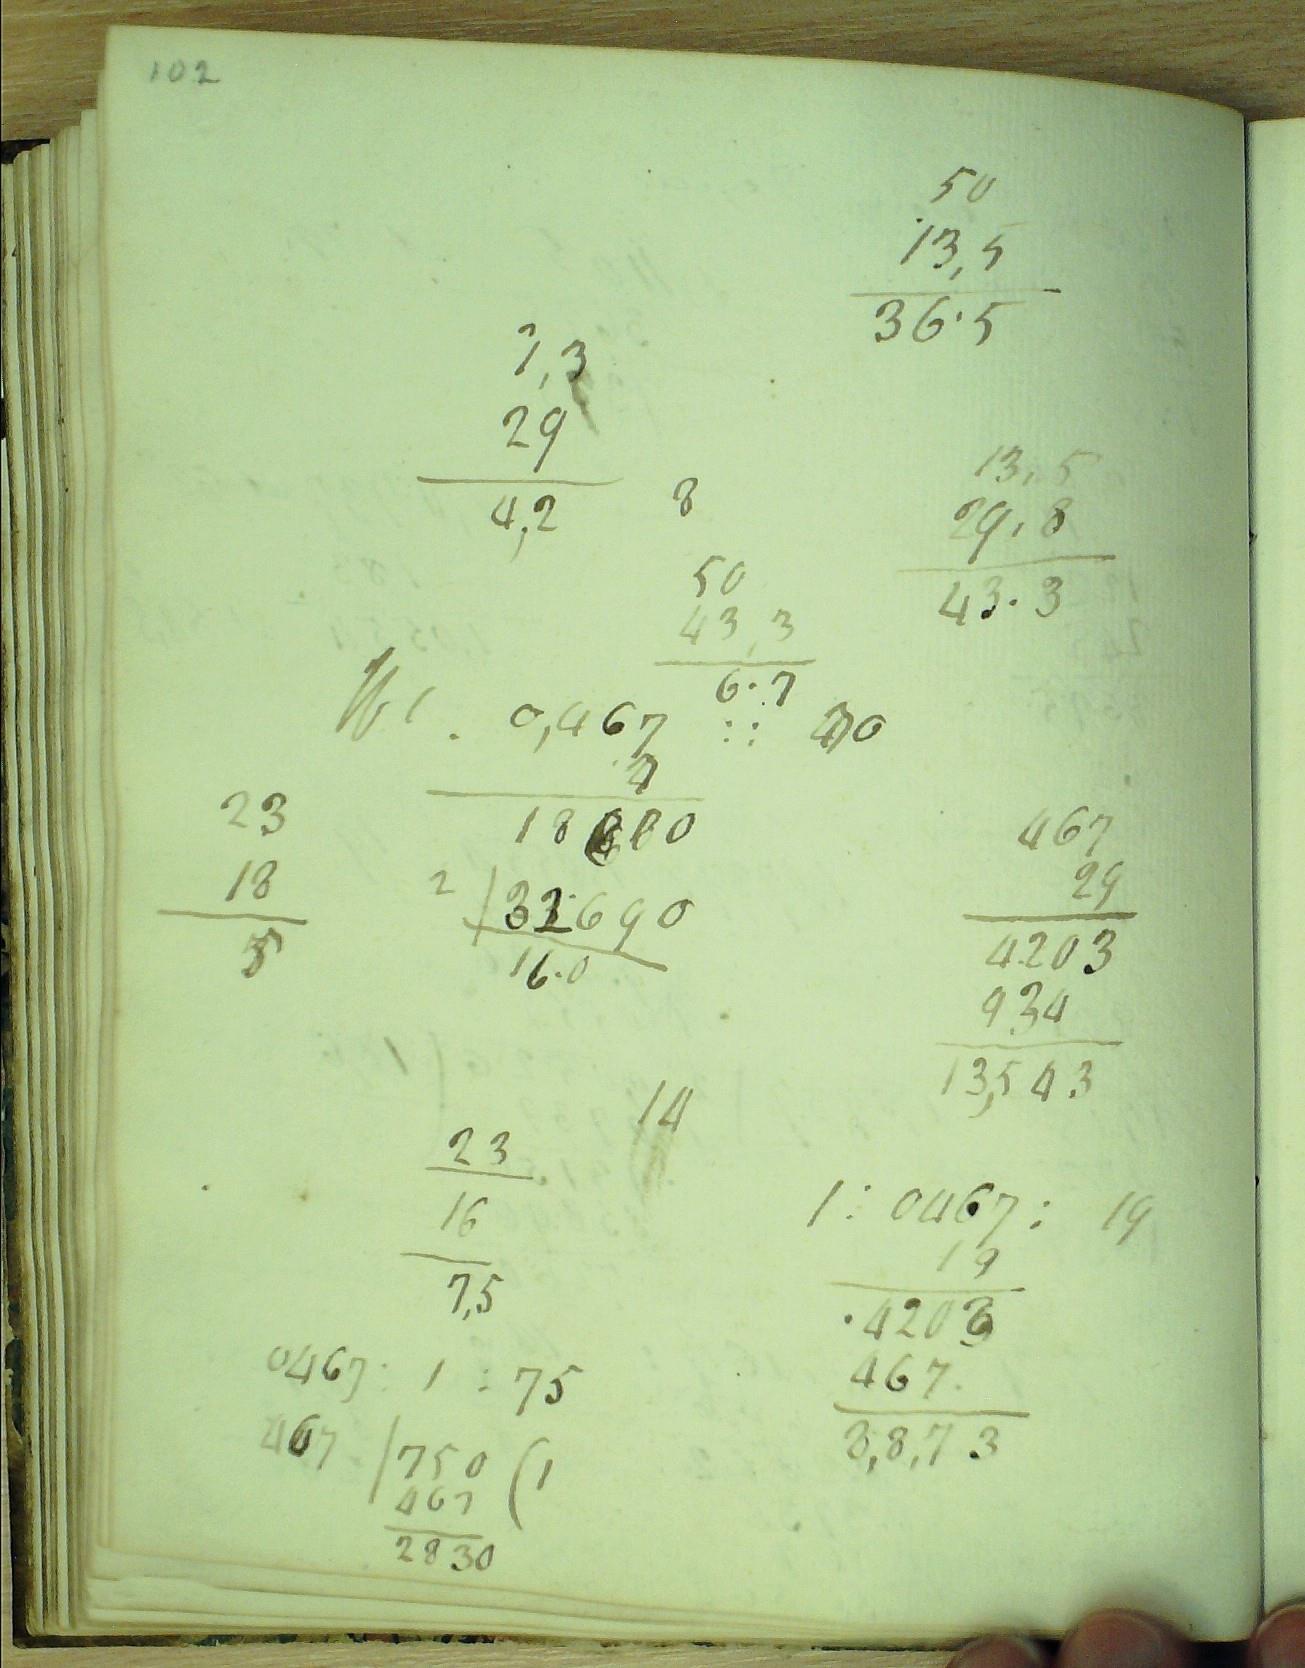 102
50
13,5
36.5
1,3
29
4,2
8
13,5
29,8
43.3
50
43,3
6.7
0,467 :: 70
7
2 32690
16.0
23
18
5
467
29
4203
934
13,543
14
23
16
7,5
1 : 0467 : 19
19
4203
467
8,8,73
0467 : 1 : 75
467 750 (1
467
2830